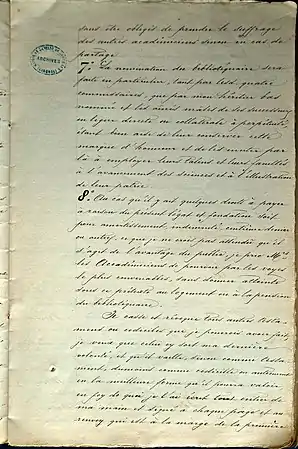 sans être obligés de prendre le suffrage
des autres académiciens sinon en cas de
partage.
7.° La nomination du bibliotéquaire sera
faite en particulier, tant par lesd. quatre
commissaires, que par mon héritier bas
nommé et les aînés mâles de ses successeurs
en ligne directe ou collatérale à perpétuité,
étant bien aise de leur conserver cette
marque d'honneur et de les inviter par
là à employer leurs talens et leurs facultés
à l'avancement des sciences et à l'illustration
de leur patrie.
8.° Au cas qu'il y ait quelques droits à payer
à raison du présent légat et fondation soit
pour amortissement, indemnité, centième denier
ou autres, ce que je ne crois pas attendu qu'il
s'agit de l'avantage du public, je prie M.rs
les Accadémiciens de pourvoir par les voyes
les plus convenables, sans donner atteinte
sous ce prétexte au logement ni à la pension
du bibliotéquaire.
Je casse et révoque tous autres testa-
mens ou codiciles que je pourrois avoir fait,
je veux que celuy cy soit ma dernière
volonté, et qu'il vaille, sinon comme testa-
ment, dumoins comme codicille ou autrement
en la meilleure forme qu'il pourra valoir
en foy de quoi je l'ai écrit tout entier de
ma main et signé à chaque page et au
renvoy qui est à la marge de la première
ARCHIVES